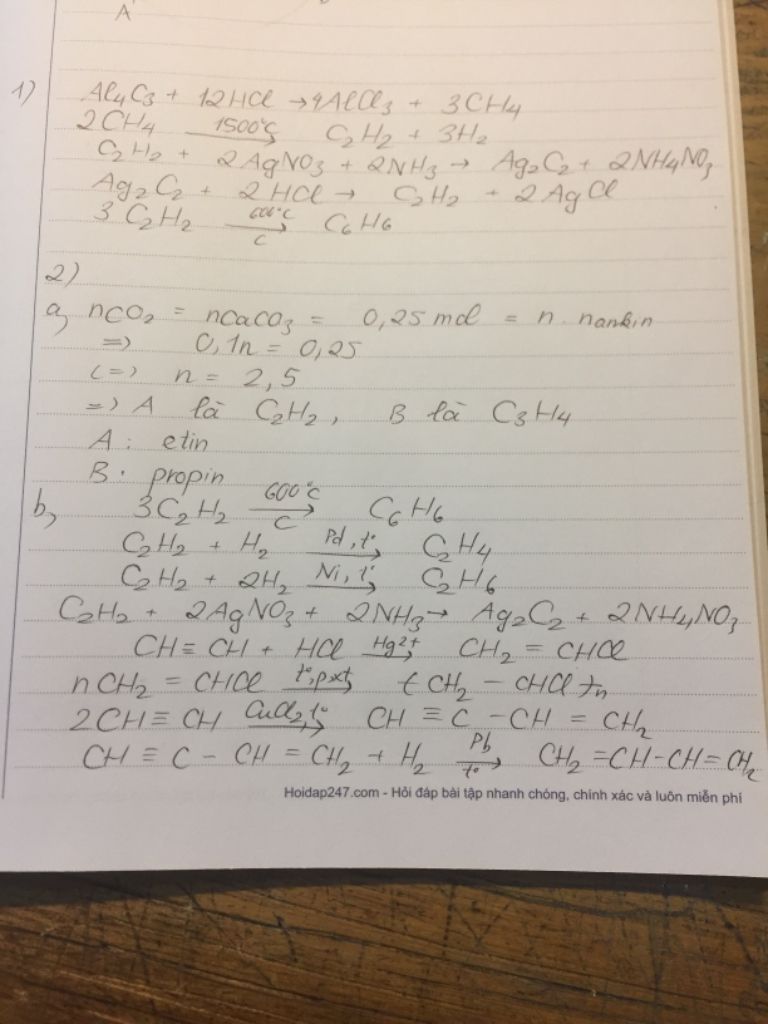 A
1)
Al₄C₃ + 12HCl → 4AlCl₃ + 3CH₄
2CH₄ 1500°C → C₂H₂ + 3H₂
C₂H₂ + 2AgNO₃ + 2NH₃ → Ag₂C₂ + 2NH₄NO₃
Ag₂C₂ + 2HCl → C₂H₂ + 2AgCl
3C₂H₂ 600°C → C C₆H₆
2)
a, nCO₂ = nCaCO₃ = 0,25 mol = n . nankin
=> 0,1n = 0,25
<=> n = 2,5
=> A là C₂H₂, B là C₃H₄
A: etin
B: propin
b, 3C₂H₂ 600°C → C C₆H₆
C₂H₂ + H₂ Pd, t° → C₂H₄
C₂H₂ + 2H₂ Ni, t° → C₂H₆
C₂H₂ + 2AgNO₃ + 2NH₃ → Ag₂C₂ + 2NH₄NO₃
CH≡CH + HCl Hg²⁺ → CH₂ = CHCl
nCH₂ = CHCl t°, p, xt → (CH₂ - CHCl)n
2CH≡CH CuCl₂, t° → CH≡C - CH = CH₂
CH≡C - CH = CH₂ + H₂ Pb → t° CH₂=CH-CH=CH₂
Hoidap247.com - Hỏi đáp bài tập nhanh chóng, chính xác và luôn miễn phí